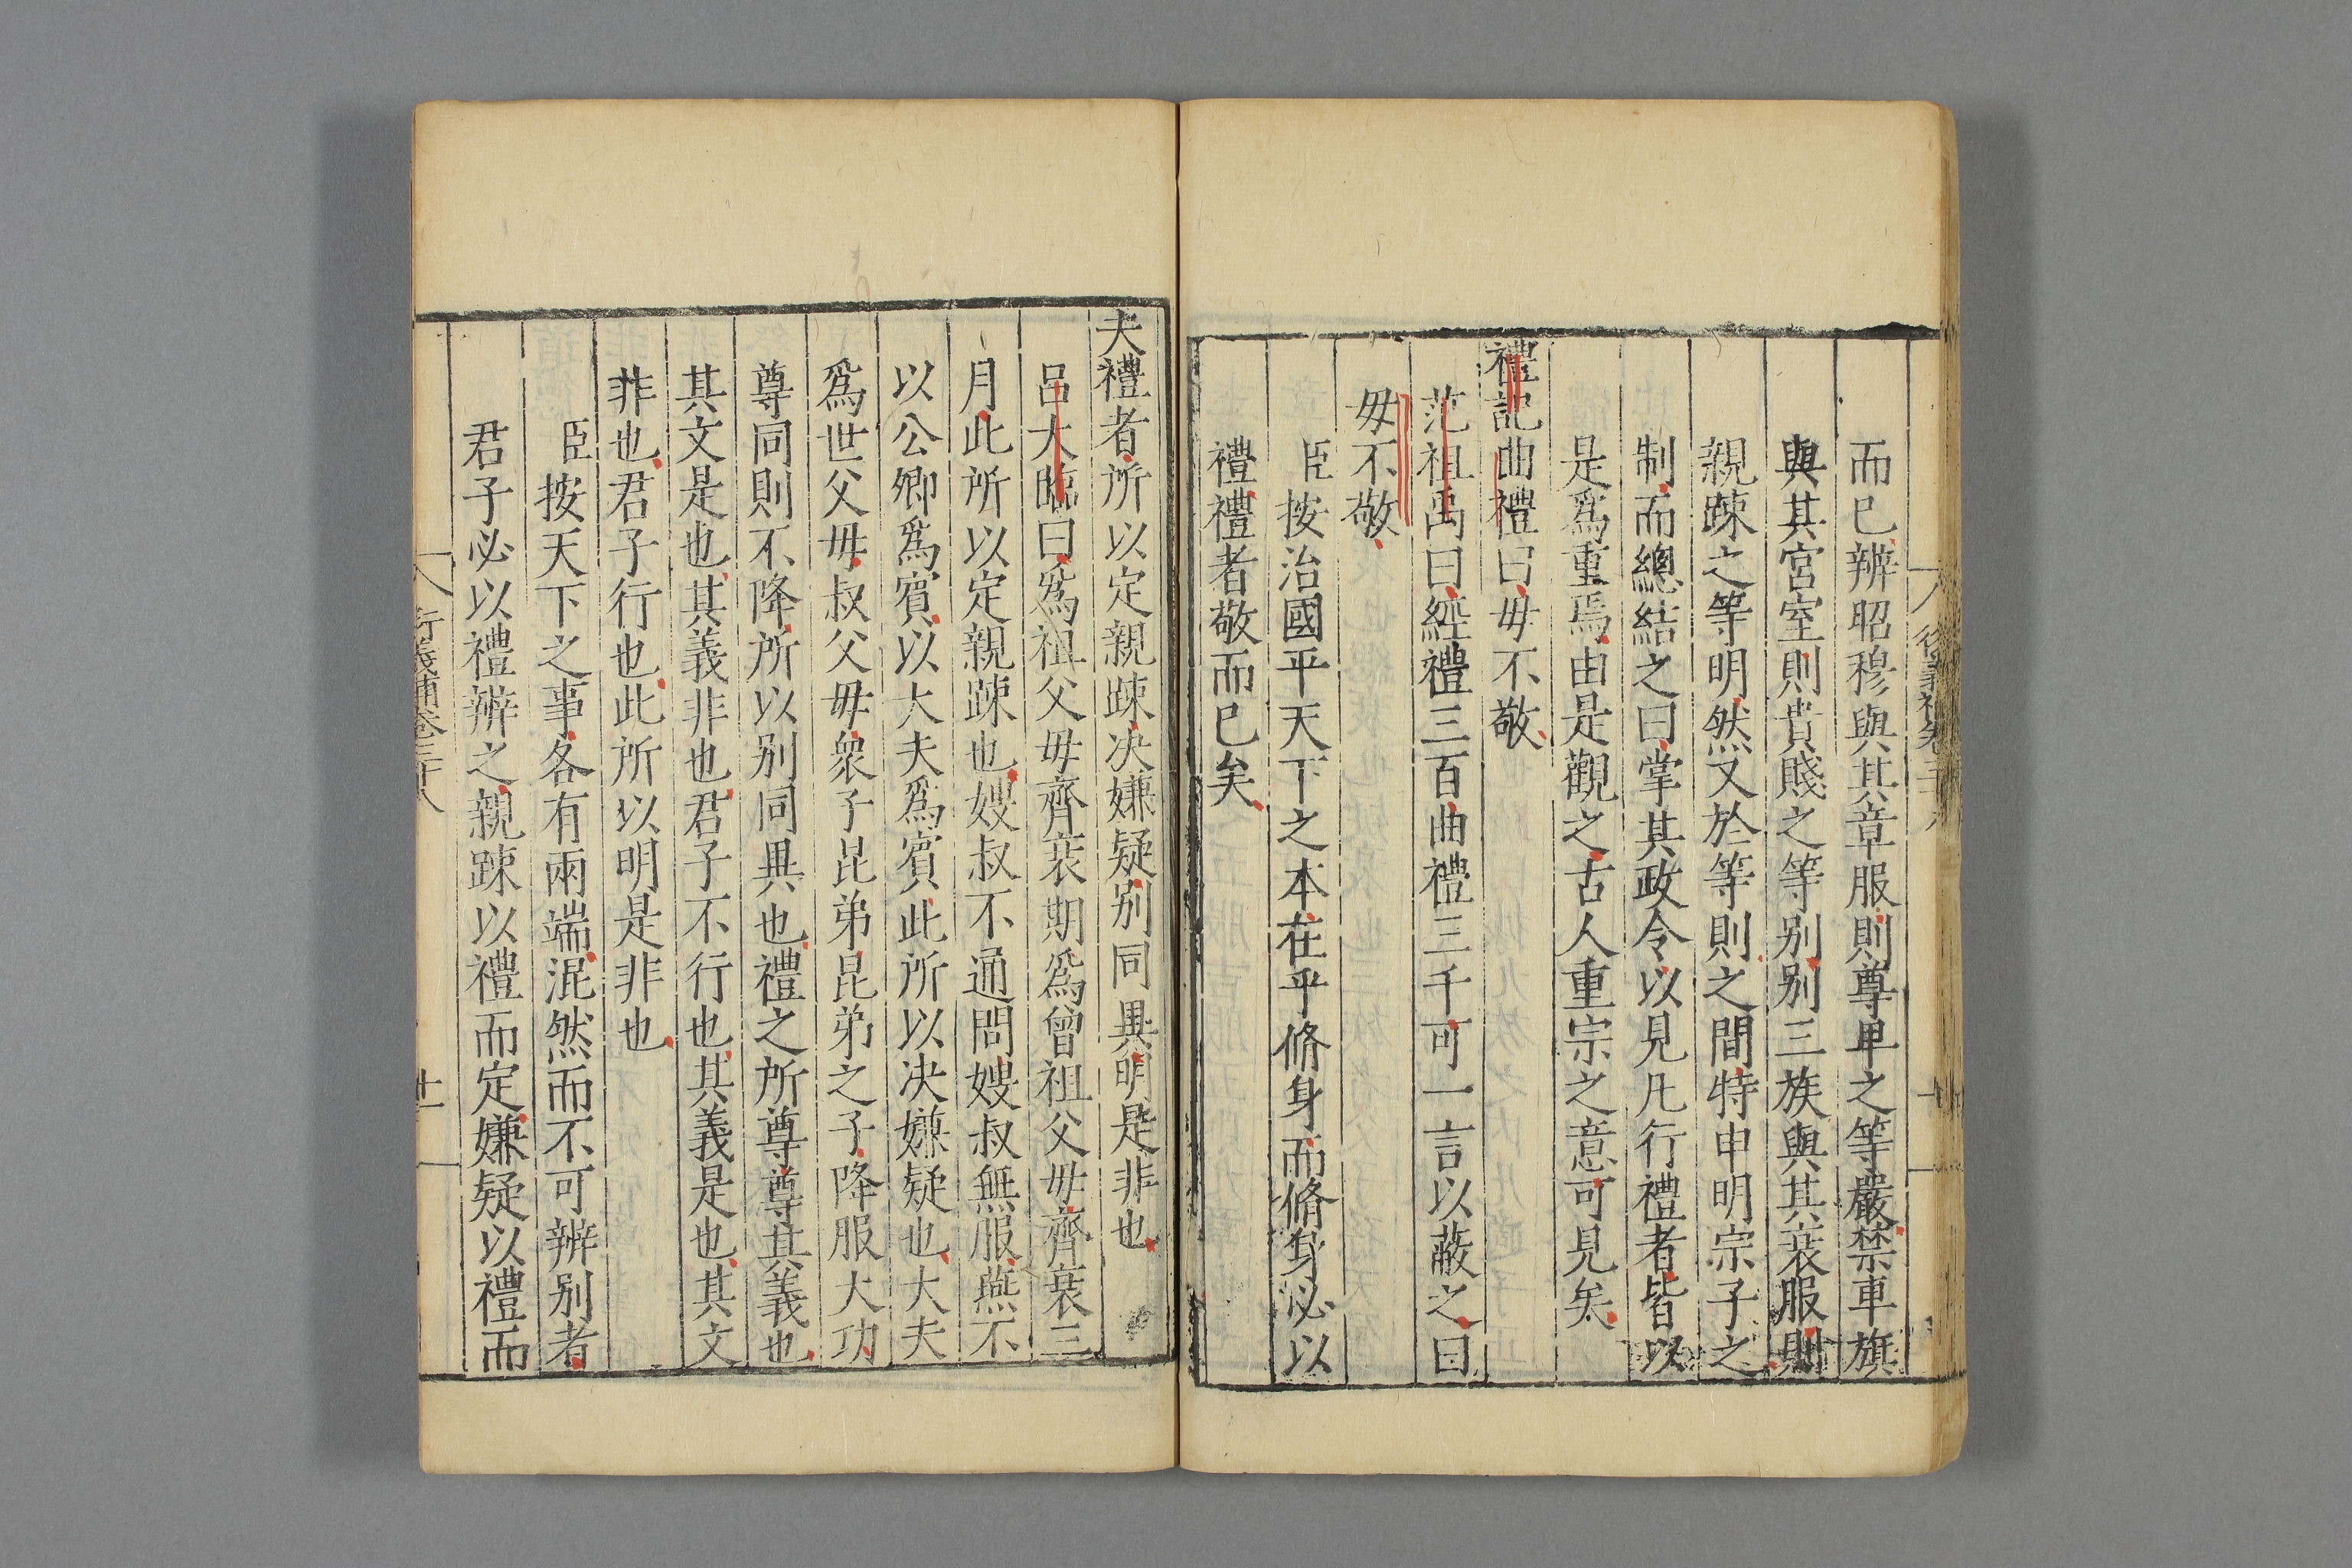 而已辨昭穆與其章服則尊卑之等嚴禁車旗
與其宮室則貴賤之等别别三族與其衰服則
親踈之等明然又於等則之間特申明宗子之
制而總結之曰掌其政令以見凡行禮者皆以
是爲重焉由是觀之古人重宗之意可見矣
禮記曲禮曰毋不敬
范祖禹曰經禮三百曲禮三千可一言以蔽之曰
毋不敬
臣按治國平天下之本在乎脩身而脩身必以
禮禮者敬而已矣
夫禮者所以定親踈决嫌疑别同異明是非也
呂大臨曰爲祖父毋齊衰期爲曾祖父毋齊衰三
月此所以定親踈也嫂叔不通問嫂叔無服燕不
以公卿爲賓以大夫爲賓此所以决嫌疑也大夫
爲世父毋叔父毋衆子昆弟昆弟之子降服大功
尊同則不降所以别同異也禮之所尊尊其義也
其文是也其義非也君子不行也其義是也其文
非也君子行也此所以明是非也
臣按天下之事各有兩端混然而不可辨别者
君子必以禮辨之親踈以禮而定嫌疑以禮而
衍義補卷三十八